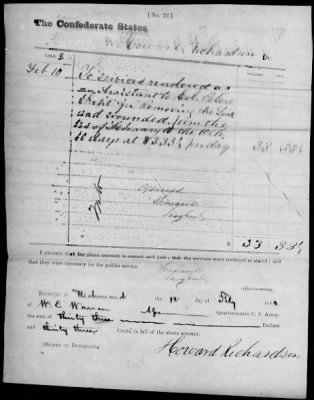 [No. 22.]
The Confederate States
Howard Richardson Dr.
Feb 10
To services rendered as
an Assistant to
in removing the Sick
and wounded, from the
1st of February to the 10th
10 days at $3.33⅓ per day 33 33⅓
Approved
Surgeon
$ 33 33⅓
I certify that the above account is correct and just; that the services were rendered as stated; and
that they were necessary for the public service.
Surgeon
Quartermaster.
Received at Richmond the 10 day of Feby
of W E Warren Quartermaster C. S. Army,
the sum of thirty three Dollars
and thirty three Cents, in full of the above account.
(Signed in Duplicate.)
Howard Richardson